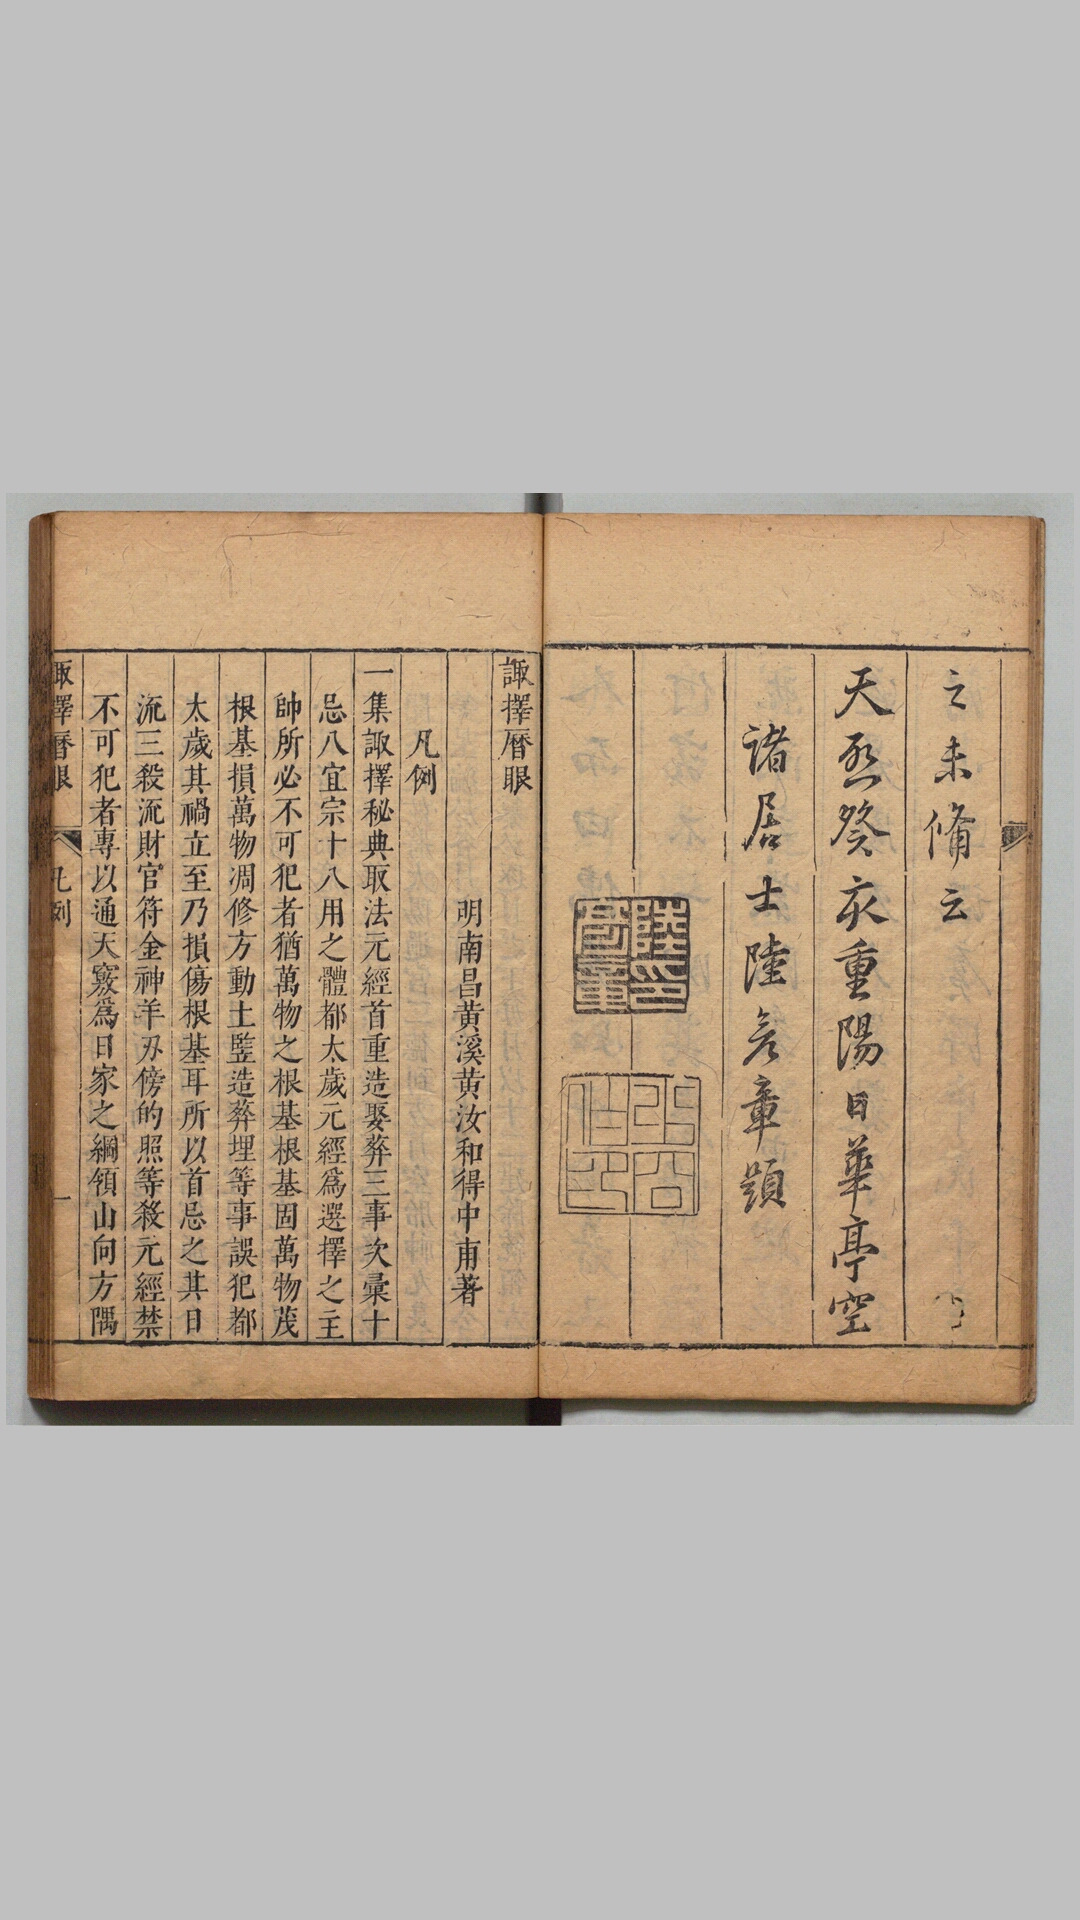 之未脩云
天啓癸亥重陽日華亭空
諸居士陸彥章題
諏擇曆眼
明南昌黃溪黃汝和得中甫著
凡例
一集諏擇秘典取法元經首重造娶葬三事次彙十
忌八宜宗十八用之體都太歲元經爲選擇之主
帥所必不可犯者猶萬物之根基根基固萬物茂
根基損萬物凋修方動土豎造葬埋等事誤犯都
太歲其禍立至乃損傷根基耳所以首忌之其日
流三殺流財官符金神羊刃傍的照等殺元經禁
不可犯者專以通天竅爲日家之綱領山向方隅
諏擇曆眼 凡例 一